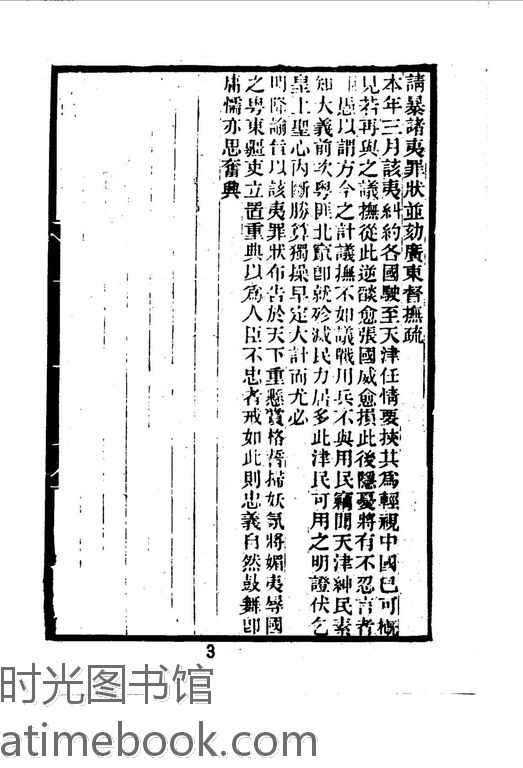 請暴諸夷罪狀並劾廣東督撫疏
本年三月該夷糾約各國駛至天津任情要挾其爲輕視中國已可概
見若再與之議撫從此逆燄愈張國威愈損此後隱憂將有不忍言者
愚以謂方今之計議撫不如議戰用兵不與用民竊聞天津紳民素
知大義前次粵匪北竄卽就殄滅民力居多此津民可用之明證伏乞
皇上聖心內斷勝算獨操早定大計而尤必
明降諭旨以該夷罪狀布告於天下重懸賞格誓掃妖氛將媚夷辱國
之粵東疆吏立置重典以爲人臣不忠者戒如此則忠義自然鼓舞卽
庸懦亦思奮興
3
时光图书馆
atimebook.com